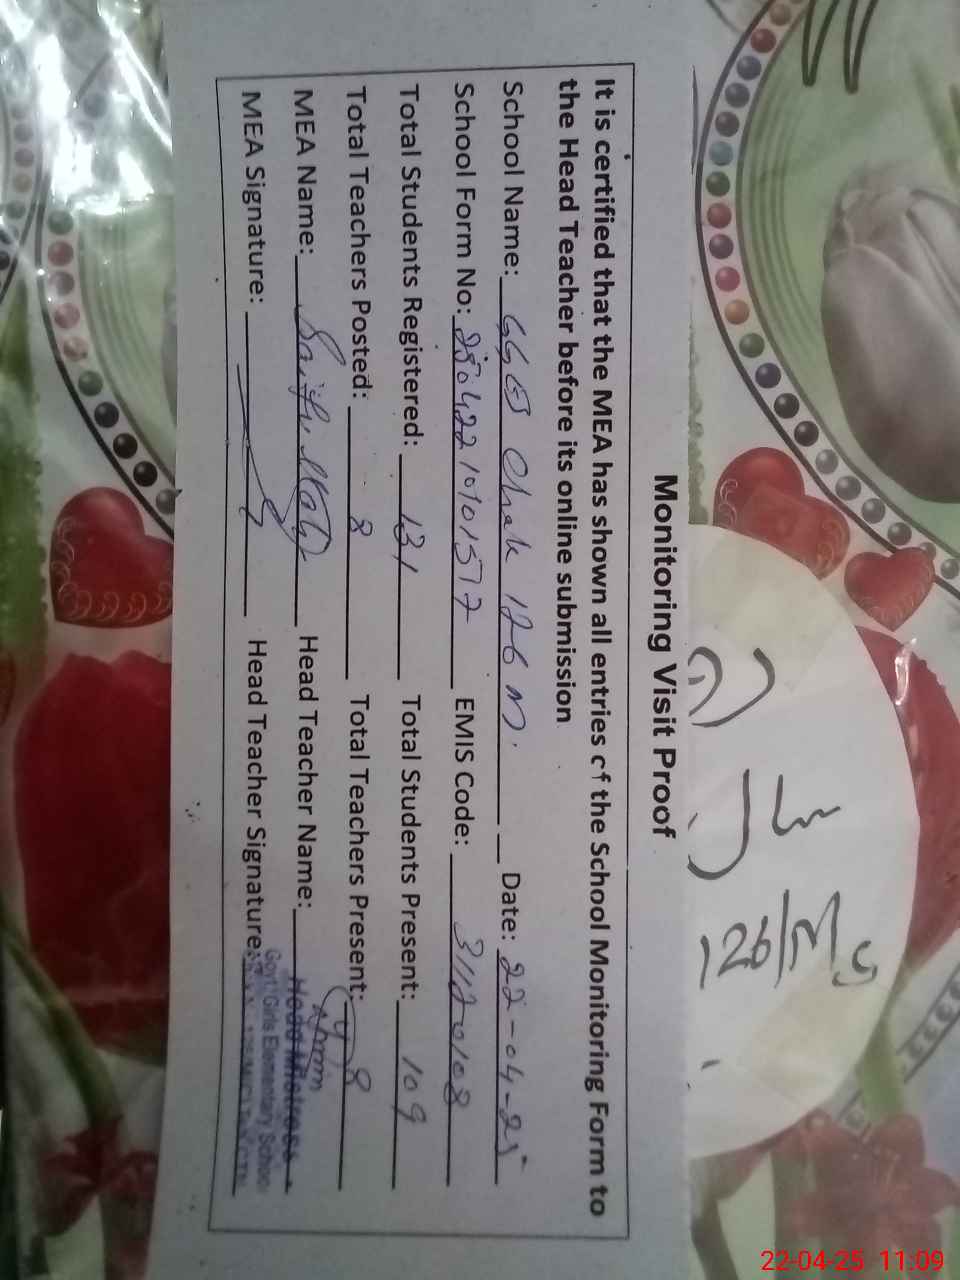 Monitoring Visit Proof
It is certified that the MEA has shown all entries of the School Monitoring Form to
the Head Teacher before its online submission
School Name: GGES Chak 126 M. Date: 22-04-25
School Form No: 28042210101577 EMIS Code: 31120108
Total Students Registered: 131 Total Students Present: 109
Total Teachers Posted: 8 Total Teachers Present: 8
MEA Name: Saif Ullah Head Teacher Name: Head Mistress
MEA Signature: Head Teacher Signature:
Govt. Girls Elementary School
126/M
22-04-25 11:09